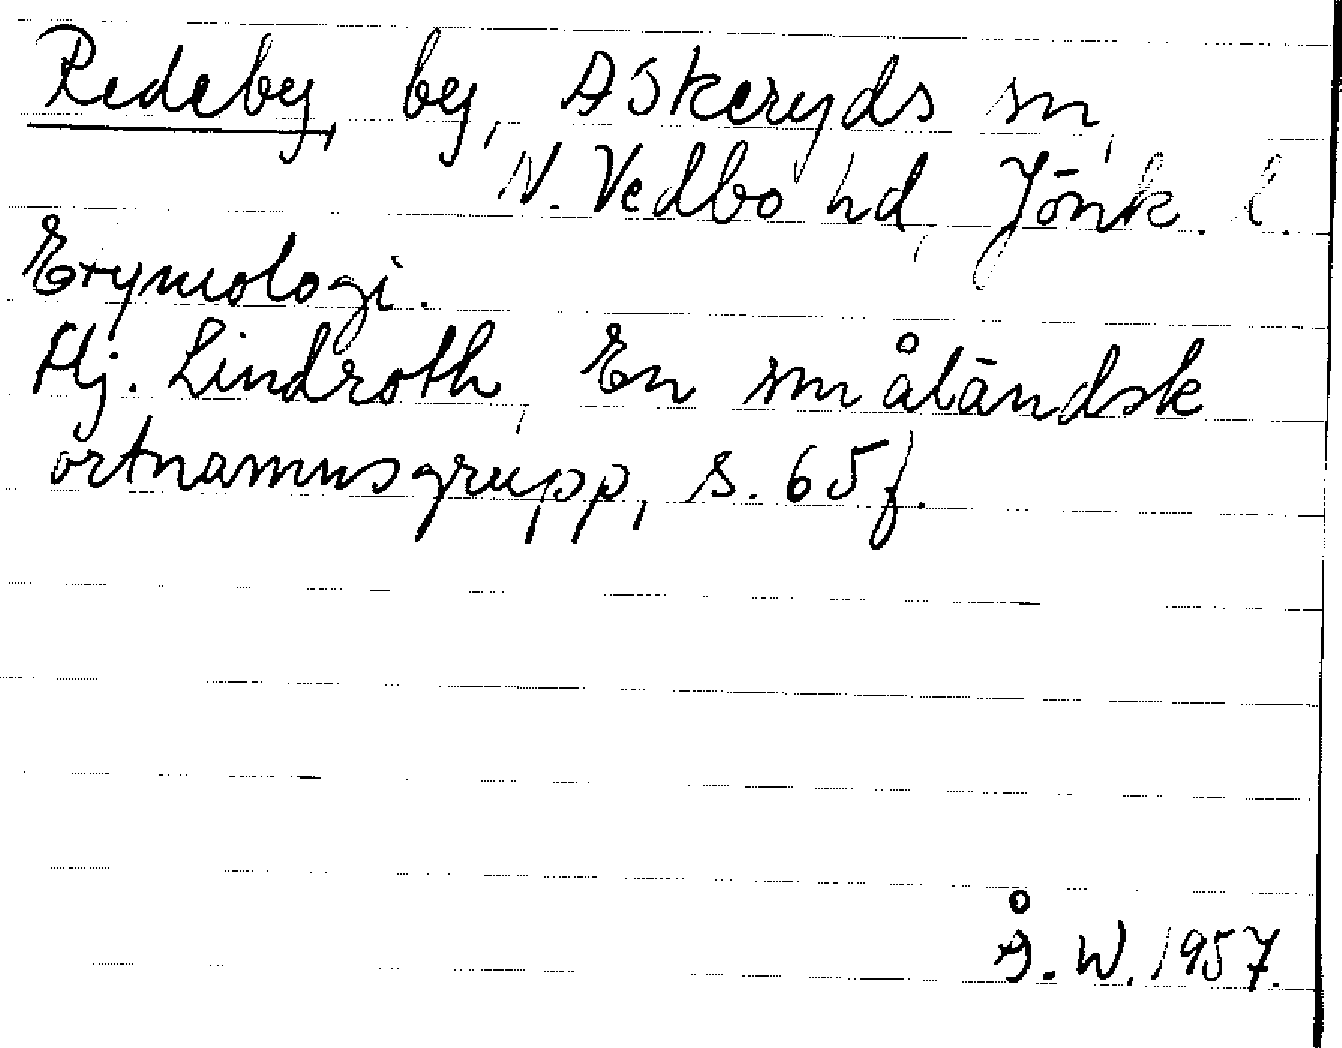 Redeby, by, Askeryds sn,
N. Vedbo hd, Jönk. l.
Etymologi.
Hj. Lindroth, En småländsk
ortnamnsgrupp, s. 65 f.
Å. W. 1957.